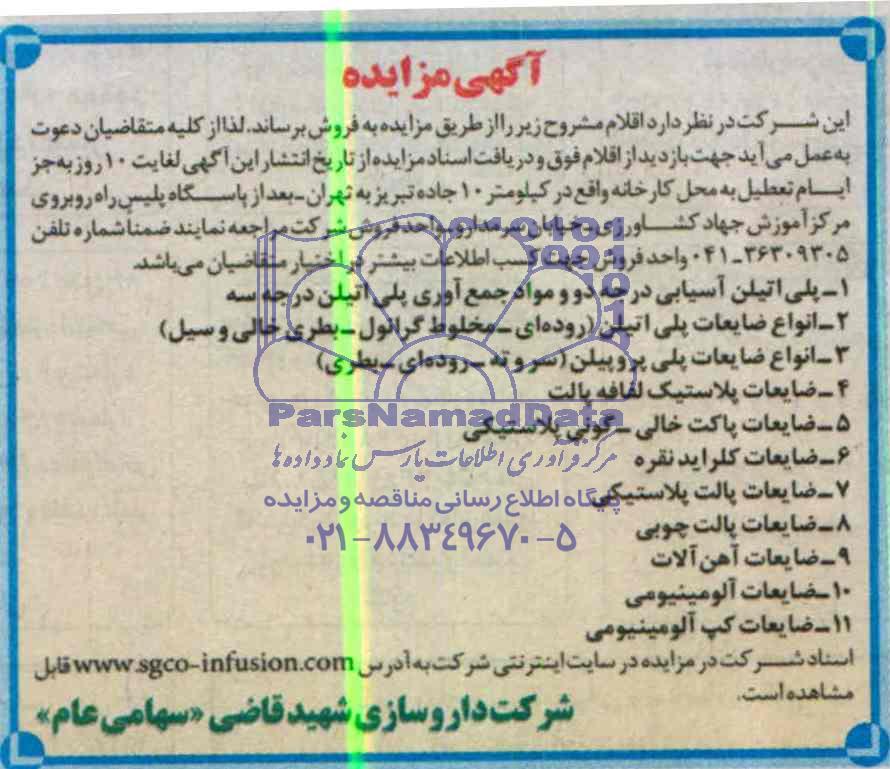 آگهی مزایده
این شرکت در نظر دارد اقلام مشروح زیر را از طریق مزایده به فروش برساند. لذا از کلیه متقاضیان دعوت
به عمل می آید جهت بازدید از اقلام فوق و دریافت اسناد مزایده از تاریخ انتشار این آگهی لغایت ۱۰ روز به جز
ایام تعطیل به محل کارخانه واقع در کیلومتر ۱۰ جاده تبریز به تهران ـ بعد از پاسگاه پلیس راه روبروی
مرکز آموزش جهاد کشاورزی ـ خیابان سرمدارو ـ واحد فروش شرکت مراجعه نمایند ضمنا شماره تلفن
۰۴۱-۳۶۳۰۹۳۰۵ واحد فروش جهت کسب اطلاعات بیشتر در اختیار متقاضیان می باشد.
۱ـ پلی اتیلن آسیابی درجه دو و مواد جمع آوری پلی اتیلن درجه سه
۲ـ انواع ضایعات پلی اتیلن (روده‌ای ـ مخلوط گرانول ـ بطری خالی و سیل)
۳ـ انواع ضایعات پلی پروپیلن (سر و ته ـ روده‌ای ـ بطری)
۴ـ ضایعات پلاستیک لفافه پالت
۵ـ ضایعات پاکت خالی ـ گونی پلاستیکی
۶ـ ضایعات کلراید نقره
۷ـ ضایعات پالت پلاستیکی
۸ـ ضایعات پالت چوبی
۹ـ ضایعات آهن آلات
۱۰ـ ضایعات آلومینیومی
۱۱ـ ضایعات کپ آلومینیومی
اسناد شرکت در مزایده در سایت اینترنتی شرکت به آدرس www.sgco-infusion.com قابل
مشاهده است.
شرکت داروسازی شهید قاضی «سهامی عام»
ParsNamadData
مرکز فرآوری اطلاعات پارس نماد داده ها
پایگاه اطلاع رسانی مناقصه و مزایده
۰۲۱-۸۸۳۴۹۶۷۰-۵